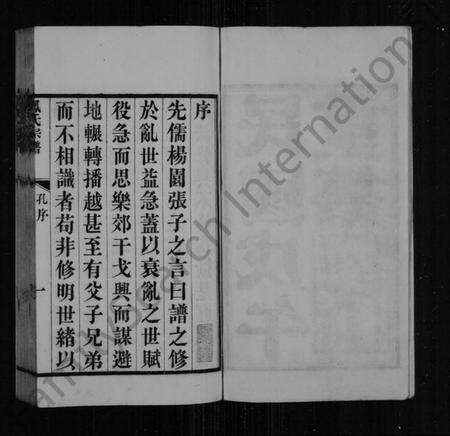 序
先儒楊園張子之言曰譜之修
於亂世益急蓋以衰亂之世賦
役急而思樂郊干戈興而謀避
地輾轉播越甚至有父子兄弟
而不相識者苟非修明世緒以
氏宗譜
孔序
一